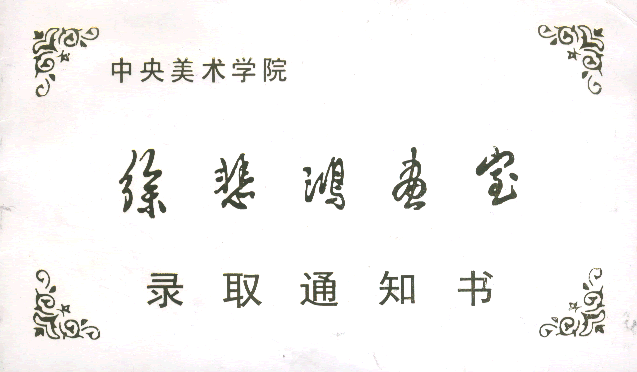 中央美术学院
徐悲鸿画室
录取通知书